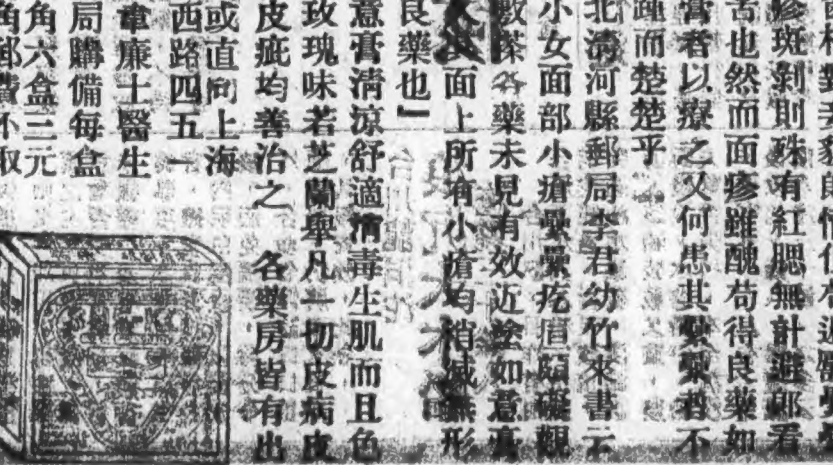 疹斑剝則殊有紅腮無計遊郎看
苦也然而面疹雖醜苟得良藥如
膏者以療之又何患其纍纍者不
踵而楚楚乎
北清河縣郵局李君幼竹來書云
小女面部小瘡纍纍疙眉頗礙觀
敷茶各藥未見有效近塗如意膏
面上所有小瘡均消滅無形
良藥也』
意膏清涼舒適消毒生肌而且色
玫瑰味若芝蘭舉凡一切皮病皮
皮疵均善治之 各藥房皆有出
或直向上海
西路四五一
韋廉士醫生
局購備每盒
角六盒三元
角郵費不取